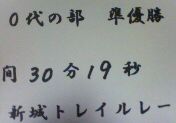 0代の部 準優勝
間30分19秒
新城トレイルレー